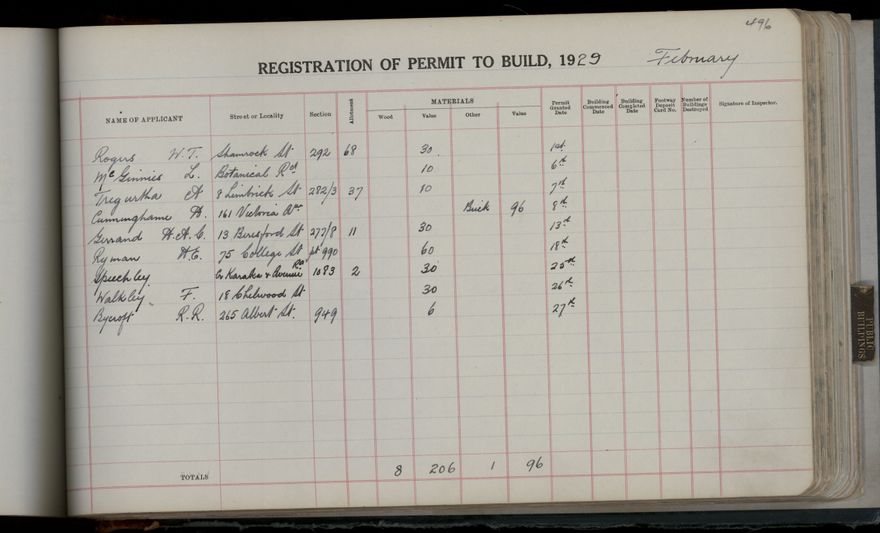 496
REGISTRATION OF PERMIT TO BUILD, 1929 February
NAME OF APPLICANT Street or Locality Section Allotment MATERIALS Wood Value Other Value Permit Granted Date Building Commenced Date Building Completed Date Footway Deposit Card No. Number of Buildings Destroyed Signature of Inspector.
Rogers W.T. Shamrock St 292 68 30 1st
McGinnies L. Botanical Rd 10 6th
Tregurtha A 8 Limbrick St 282/3 37 10 7th
Cunninghame 161 Victoria Ave Brick 96 8th
Gerrand H.A.C. 13 Beresford St 277/8 11 30 13th
Ryman H.E. 75 College St pt 990 60 18th
Speechley Cr Karaka & Avenue Rd 1083 2 30 25th
Walkley F. 18 Chelwood St 30 26th
Bycroft R.R. 265 Albert St. 949 6 27th
TOTALS 8 206 1 96
PUBLIC BUILDINGS